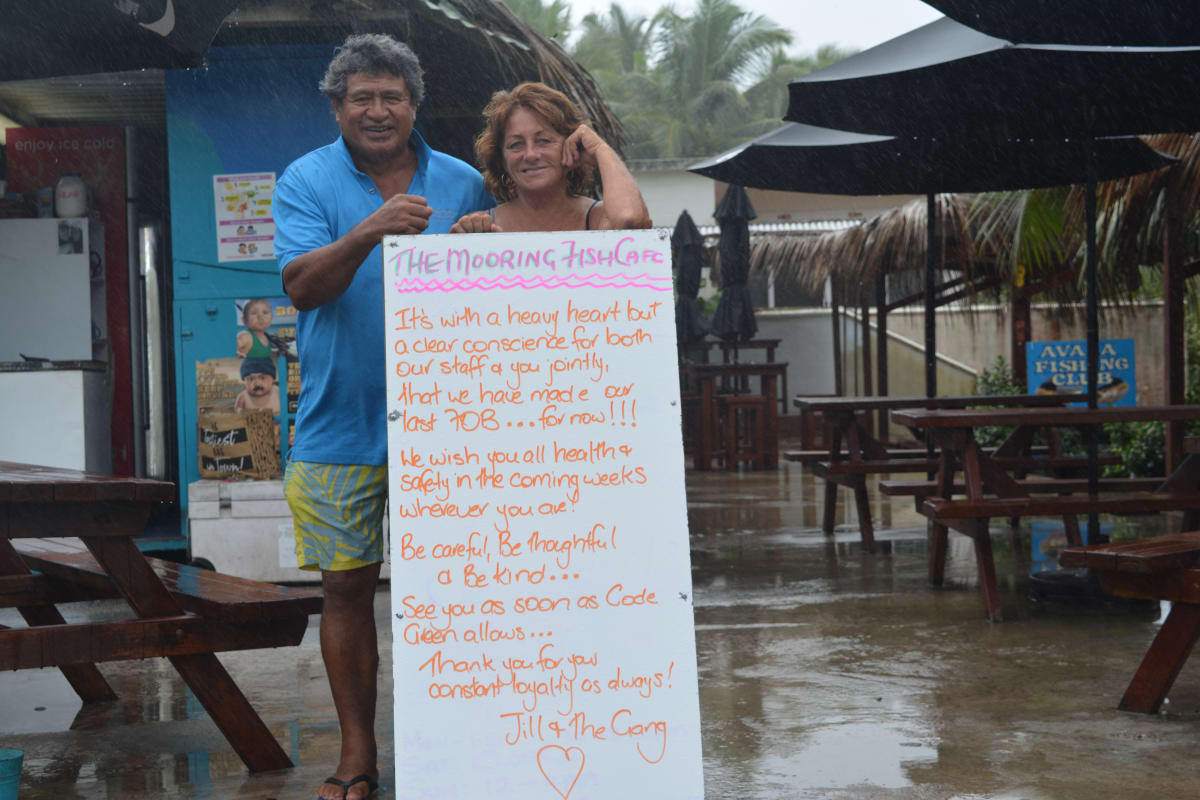 enjoy ice cold
THE MOORING FISH CAFE
It's with a heavy heart but
a clear conscience for both
our staff & you jointly,
that we have made our
last FOB...for now!!!
We wish you all health &
safety in the coming weeks
wherever you are!
Be careful, Be thoughtful
& Be kind...
See you as soon as Code
Green allows...
Thank you for your
constant loyalty as always!
Jill & The Gang
AVANA
FISHING
CLUB
Tastiest
in Town!